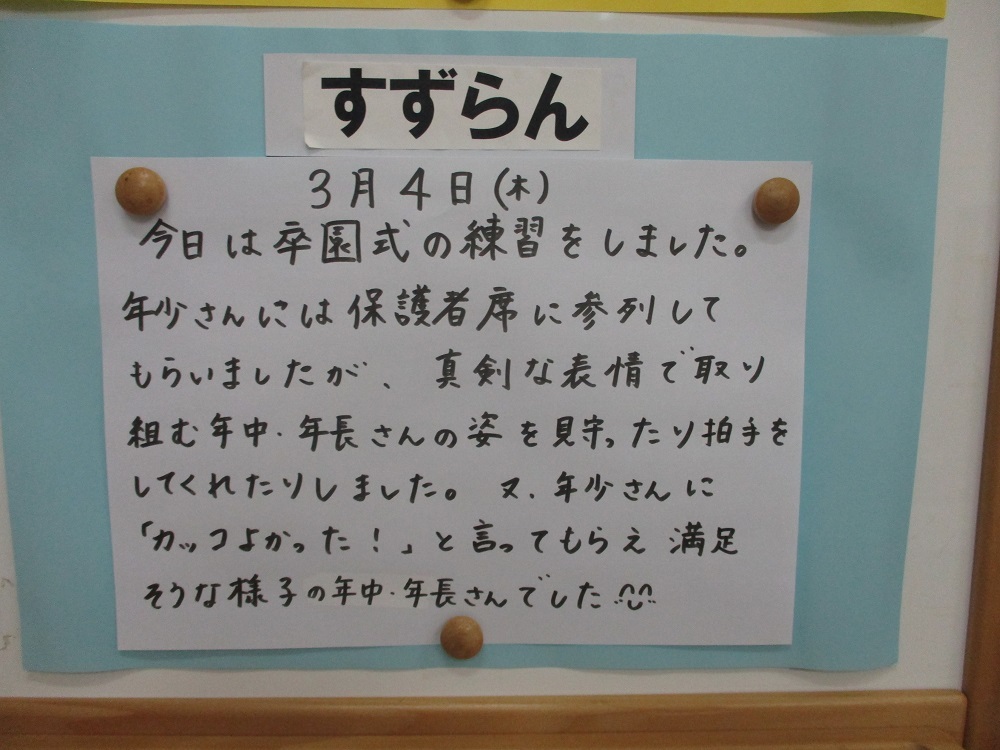 すずらん
3月4日(木)
今日は卒園式の練習をしました。
年少さんには保護者席に参列して
もらいましたが、真剣な表情で取り
組む年中・年長さんの姿を見守ったり拍手を
してくれたりしました。又、年少さんに
「カッコよかった！」と言ってもらえ満足
そうな様子の年中・年長さんでした